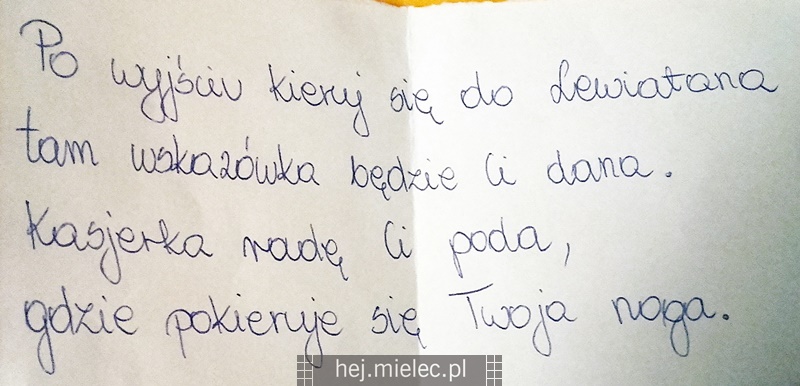 Po wyjściu kieruj się do Lewiatana
tam wskazówka będzie Ci dana.
Kasjerka radę Ci poda,
gdzie pokieruje się Twoja noga.
hej.mielec.pl